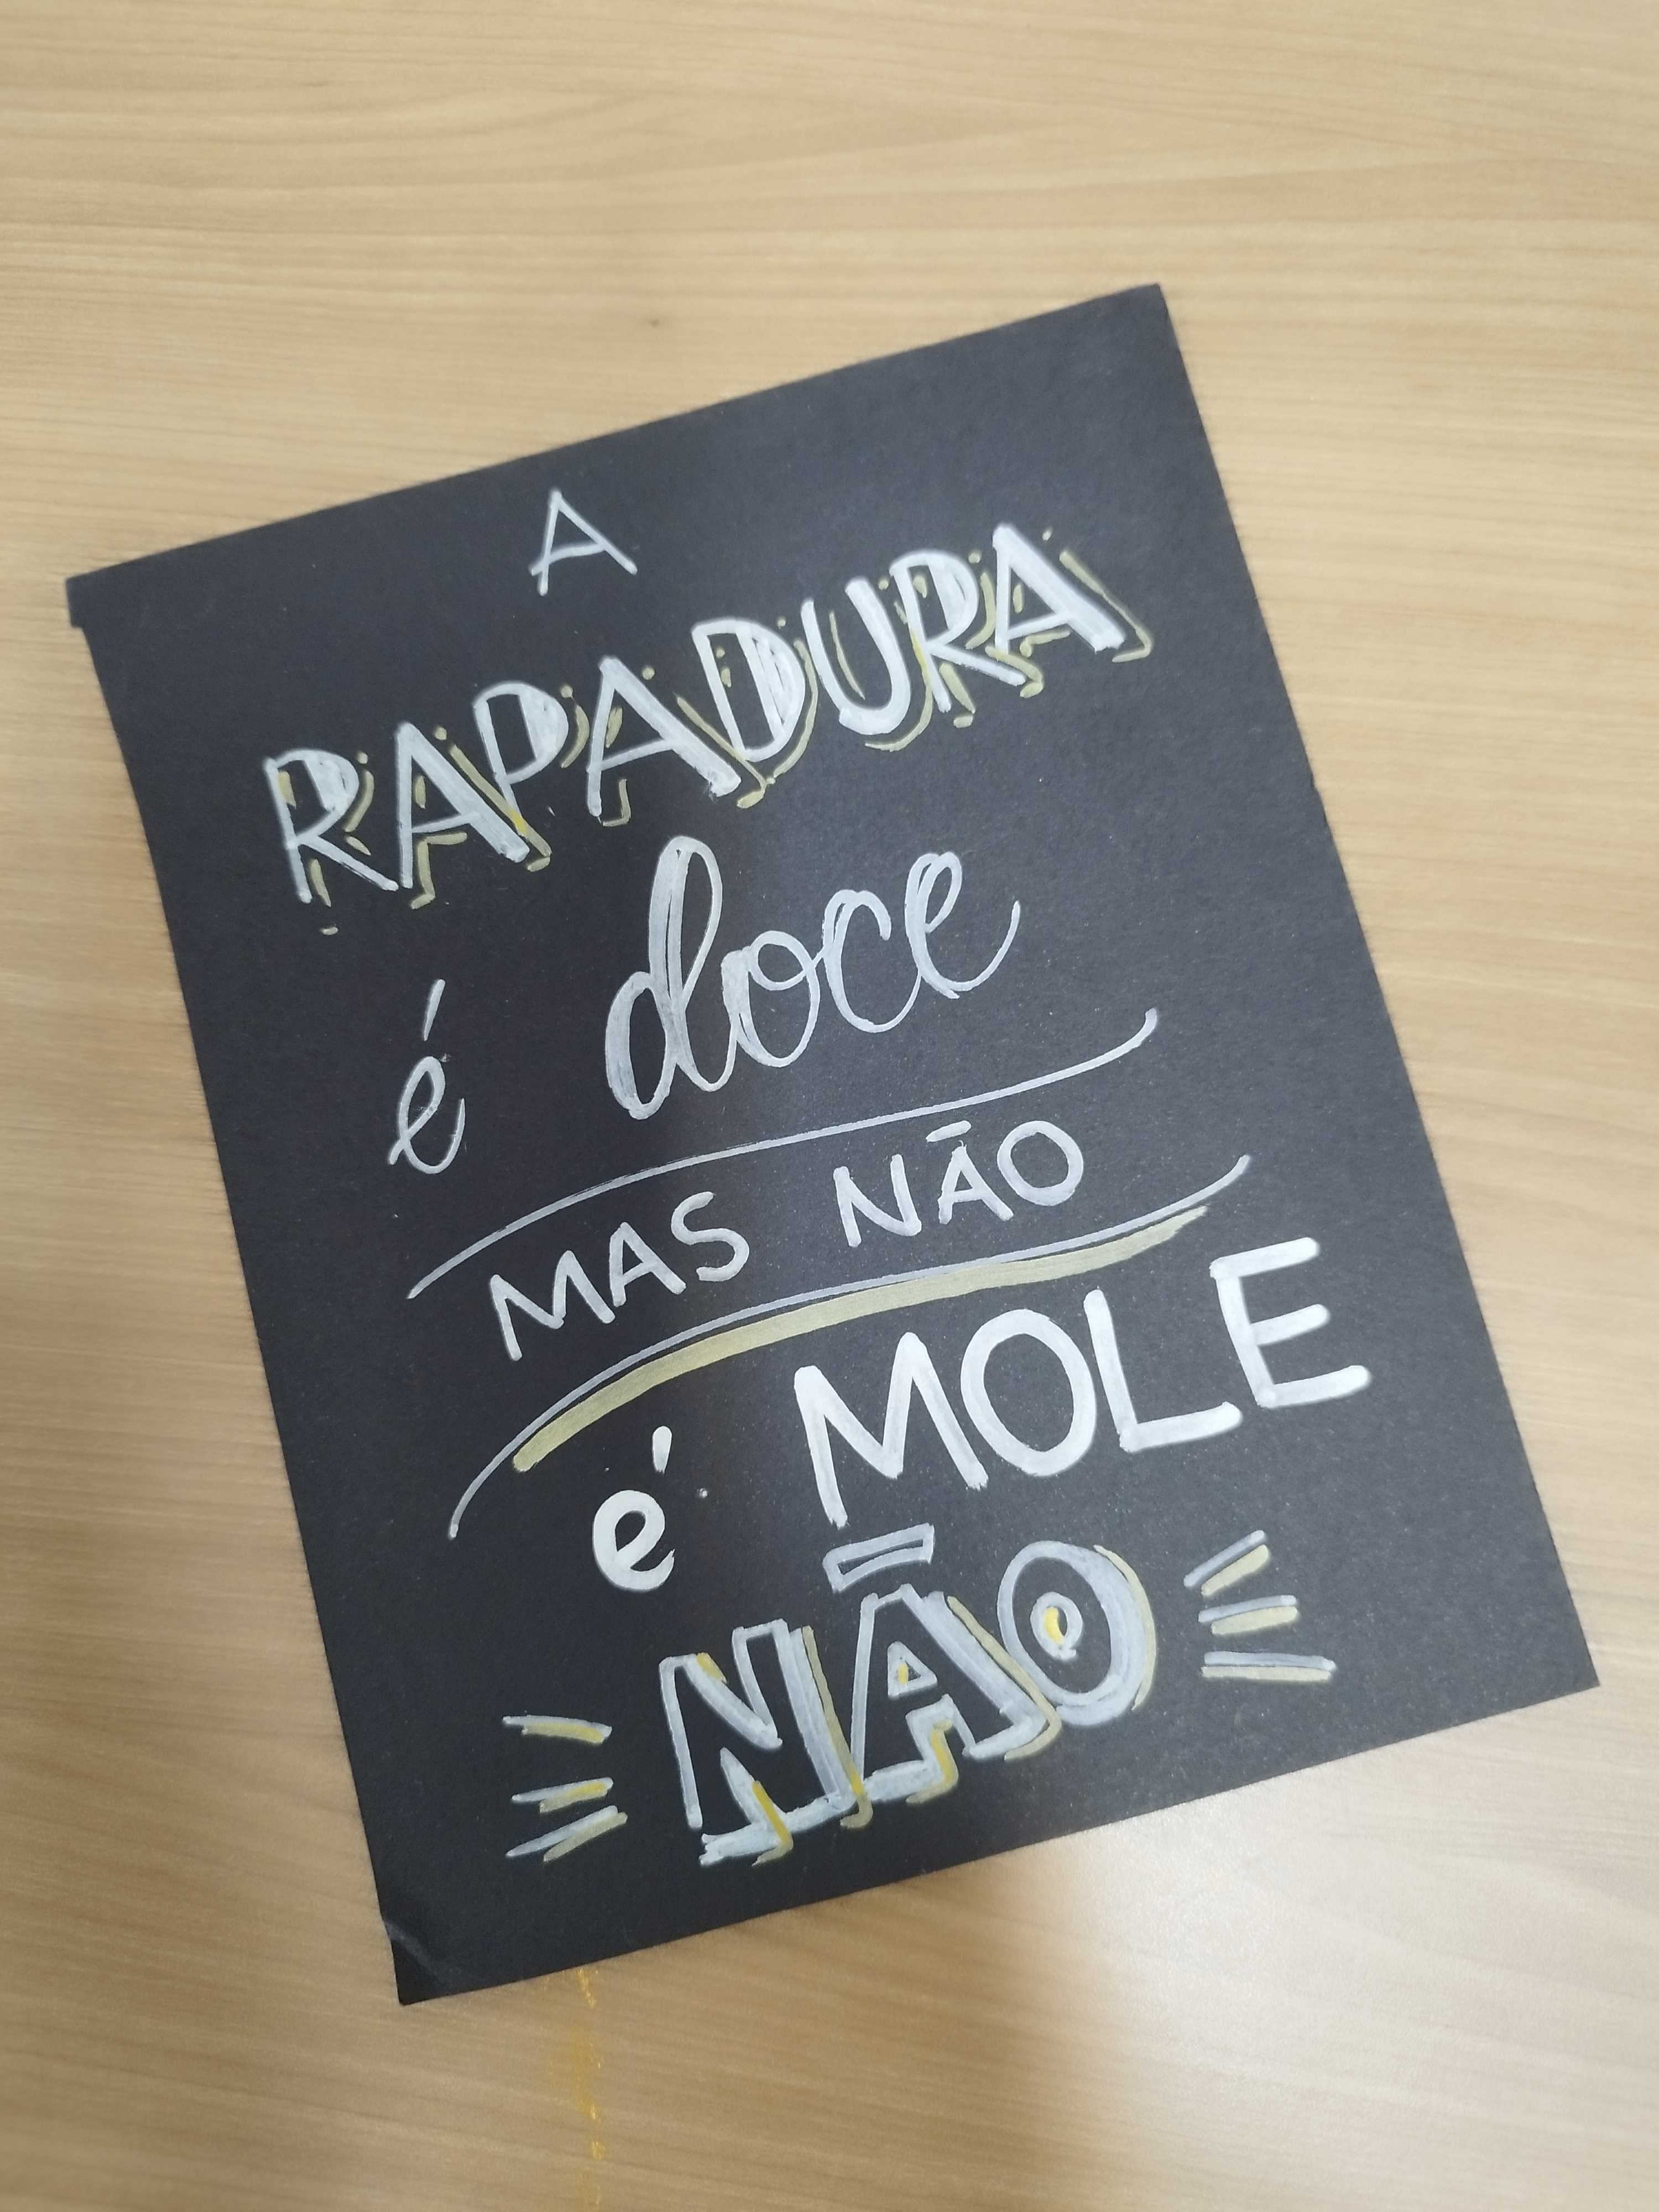 A
RAPADURA
é doce
MAS NÃO
é MOLE
NÃO